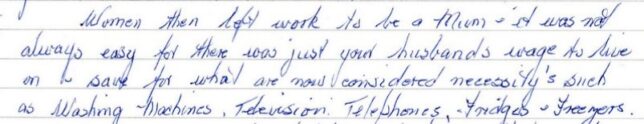 Women then left work to be a Mum - it was not
always easy for there was just your husbands wage to live
on & save for what are now considered necessity's such
as Washing Machines, Television, Telephones, Fridges & Freezers.